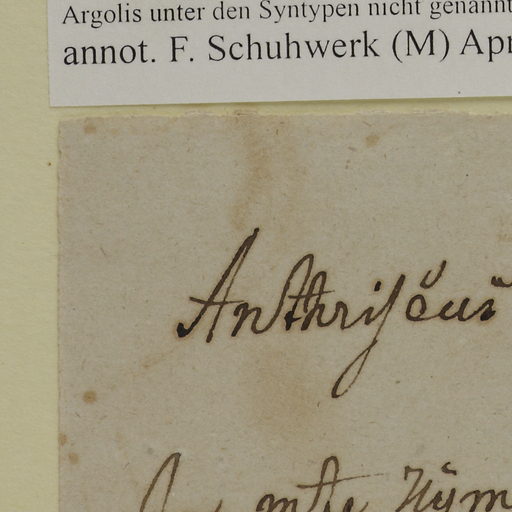 Argolis unter den Syntypen nicht genannt
annot. F. Schuhwerk (M) Apr
Anthriscus